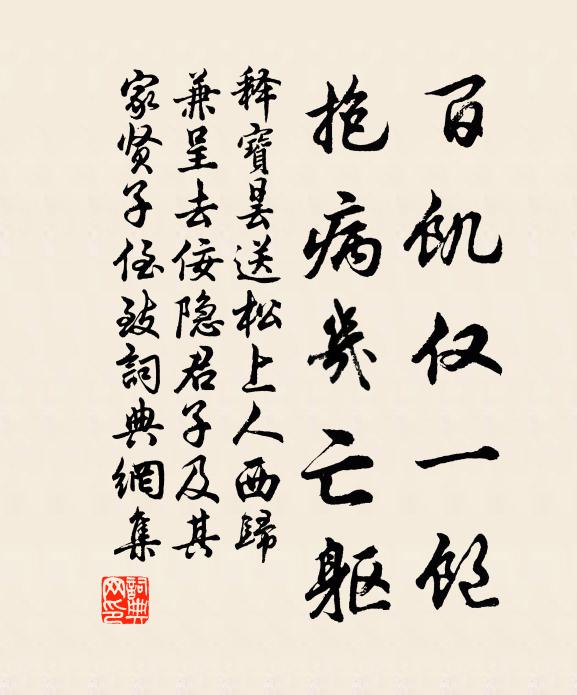 百飢仅一饱
抱病幾亡躯
释寶曇送松上人西歸
兼呈去佞隐君子及其
家贤子侄致詞典網集
詞典
网印